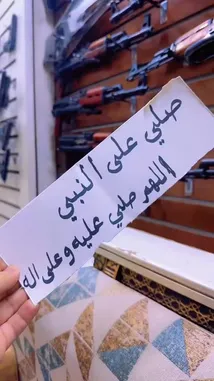 صلي على النبي
اللهم صلي عليه وعلى اله